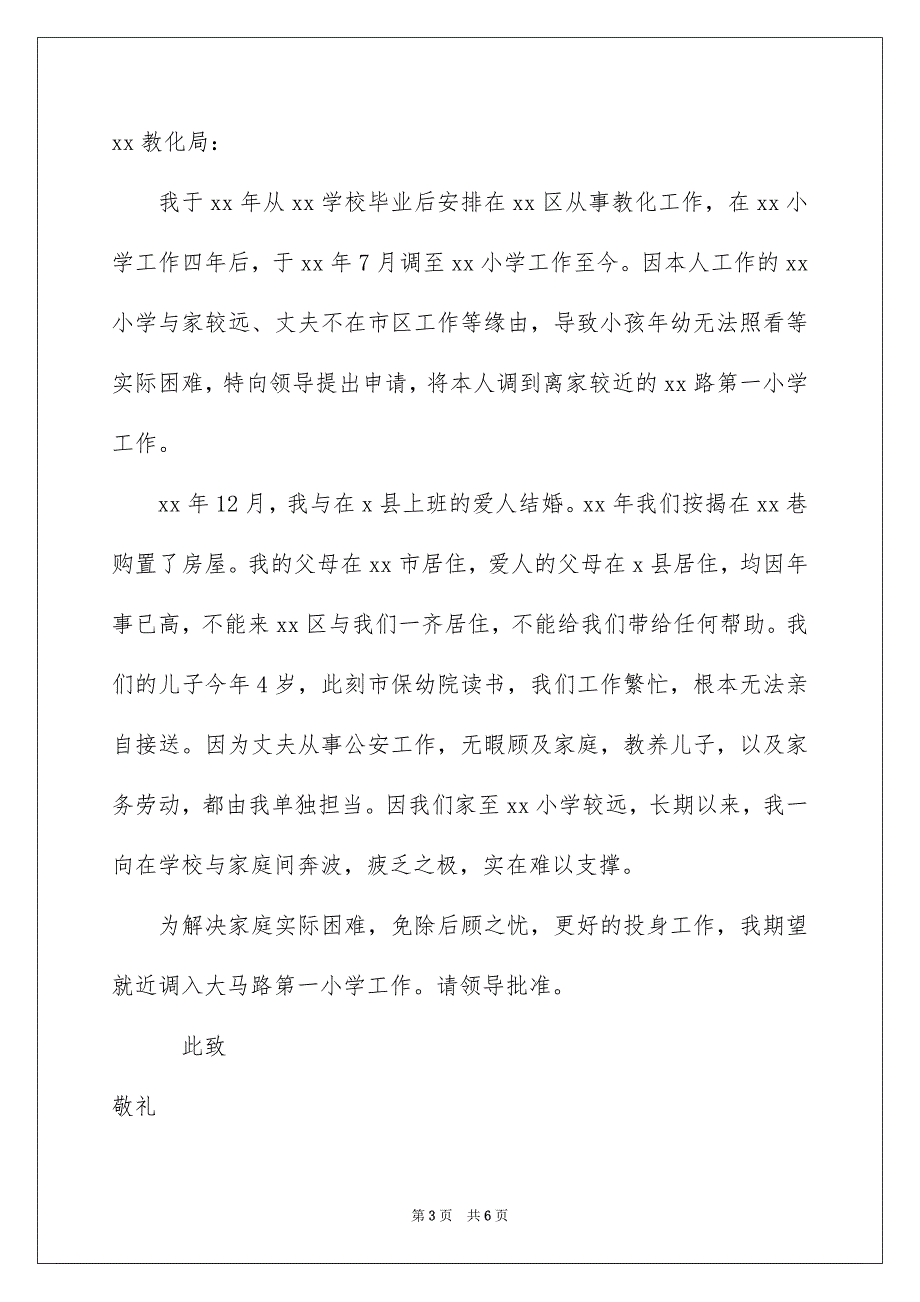 xx 教化局：
我于 xx 年从 xx 学校毕业后安排在 xx 区从事教化工作，在 xx 小
学工作四年后，于 xx 年 7 月调至 xx 小学工作至今。因本人工作的 xx
小学与家较远、丈夫不在市区工作等缘由，导致小孩年幼无法照看等
实际困难，特向领导提出申请，将本人调到离家较近的 xx 路第一小学
工作。
xx 年 12 月，我与在 x 县上班的爱人结婚。xx 年我们按揭在 xx 巷
购置了房屋。我的父母在 xx 市居住，爱人的父母在 x 县居住，均因年
事已高，不能来 xx 区与我们一齐居住，不能给我们带给任何帮助。我
们的儿子今年 4 岁，此刻市保幼院读书，我们工作繁忙，根本无法亲
自接送。因为丈夫从事公安工作，无暇顾及家庭，教养儿子，以及家
务劳动，都由我单独担当。因我们家至 xx 小学较远，长期以来，我一
向在学校与家庭间奔波，疲乏之极，实在难以支撑。
为解决家庭实际困难，免除后顾之忧，更好的投身工作，我期望
就近调入大马路第一小学工作。请领导批准。
此致
敬礼
第 3 页 共 6 页